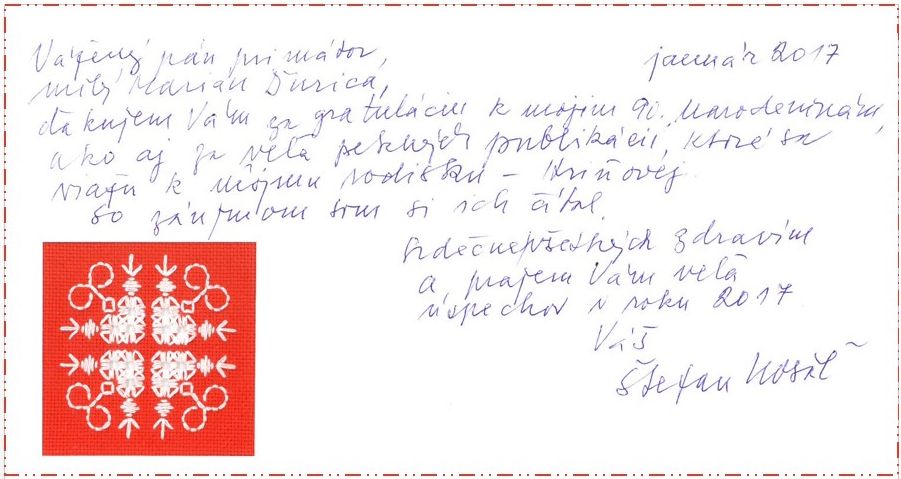 január 2017
Vážený pán primátor,
milý Marián Ďurica,
ďakujem Vám za gratuláciu k mojim 90. narodeninám,
ako aj za veľa pekných publikácií, ktoré sa
viažu k môjmu rodisku – Hriňovej.
So záujmom som si ich čítal.
Srdečne všetkých zdravím
a prajem Vám veľa
úspechov v roku 2017
Váš
Štefan